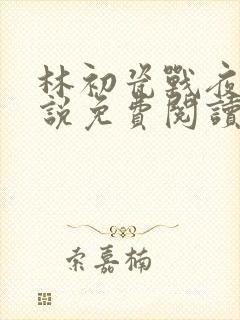 林初瓷戰夜
說免費閱讀
索嘉楠